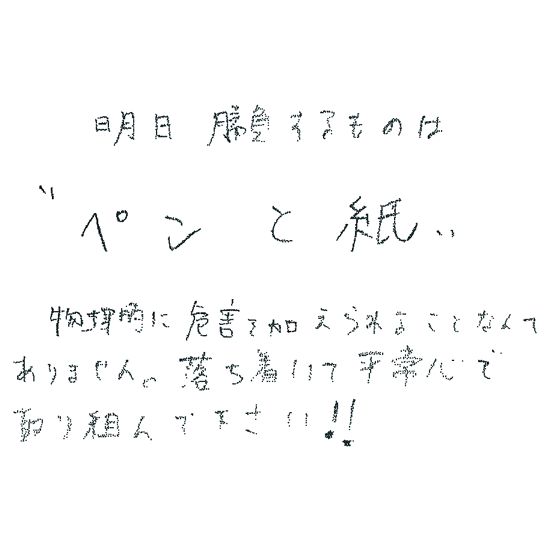 明日 勝負するものは
"ペンと紙"
物理的に危害を加えられることなんて
ありません。落ち着いて平常心で
取り組んで下さい!!